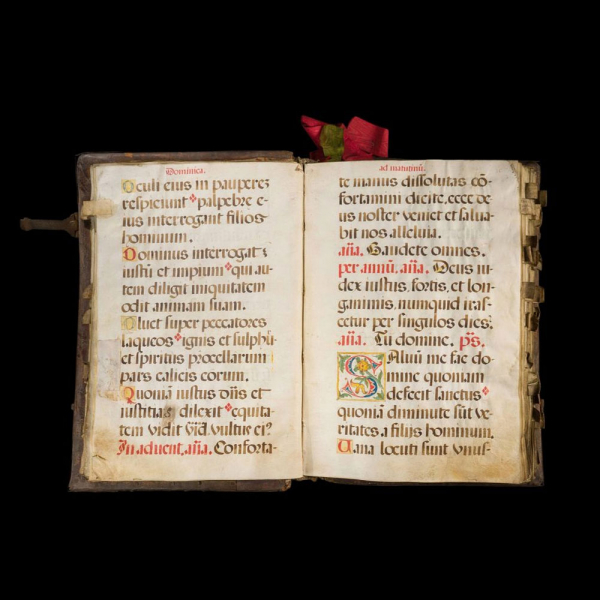 Dominica.
Oculi eius in pauperez
respiciunt palpebre e-
ius interrogant filios
hominum.
Dominus interrogat
iustū et impium qui au-
tem diligit iniquitatem
odit animam suam.
Pluet super peccatores
laqueos ignis et sulphu
et spiritus procellarum
pars calicis eorum.
Quoniā iustus dñs et
iustitias dilexit equita-
tem vidit vultus ei?
In advent. aña. Conforta-
ad matutinū.
te manus dissolutas cō-
fortamini dicite. ecce de-
us noster veniet et salua-
bit nos alleluia.
aña. Gaudete omnes.
per annū. aña. Deus iu-
dex iustus, fortis, et lon-
ganimis, numquid iras-
cetur per singulos dies;
aña. Tu domine. ps.
Saluū me fac do-
mine quoniam
defecit sanctus
quoniā diminute sūt ve-
ritates a filijs hominum.
Uana locuti sunt vnus-